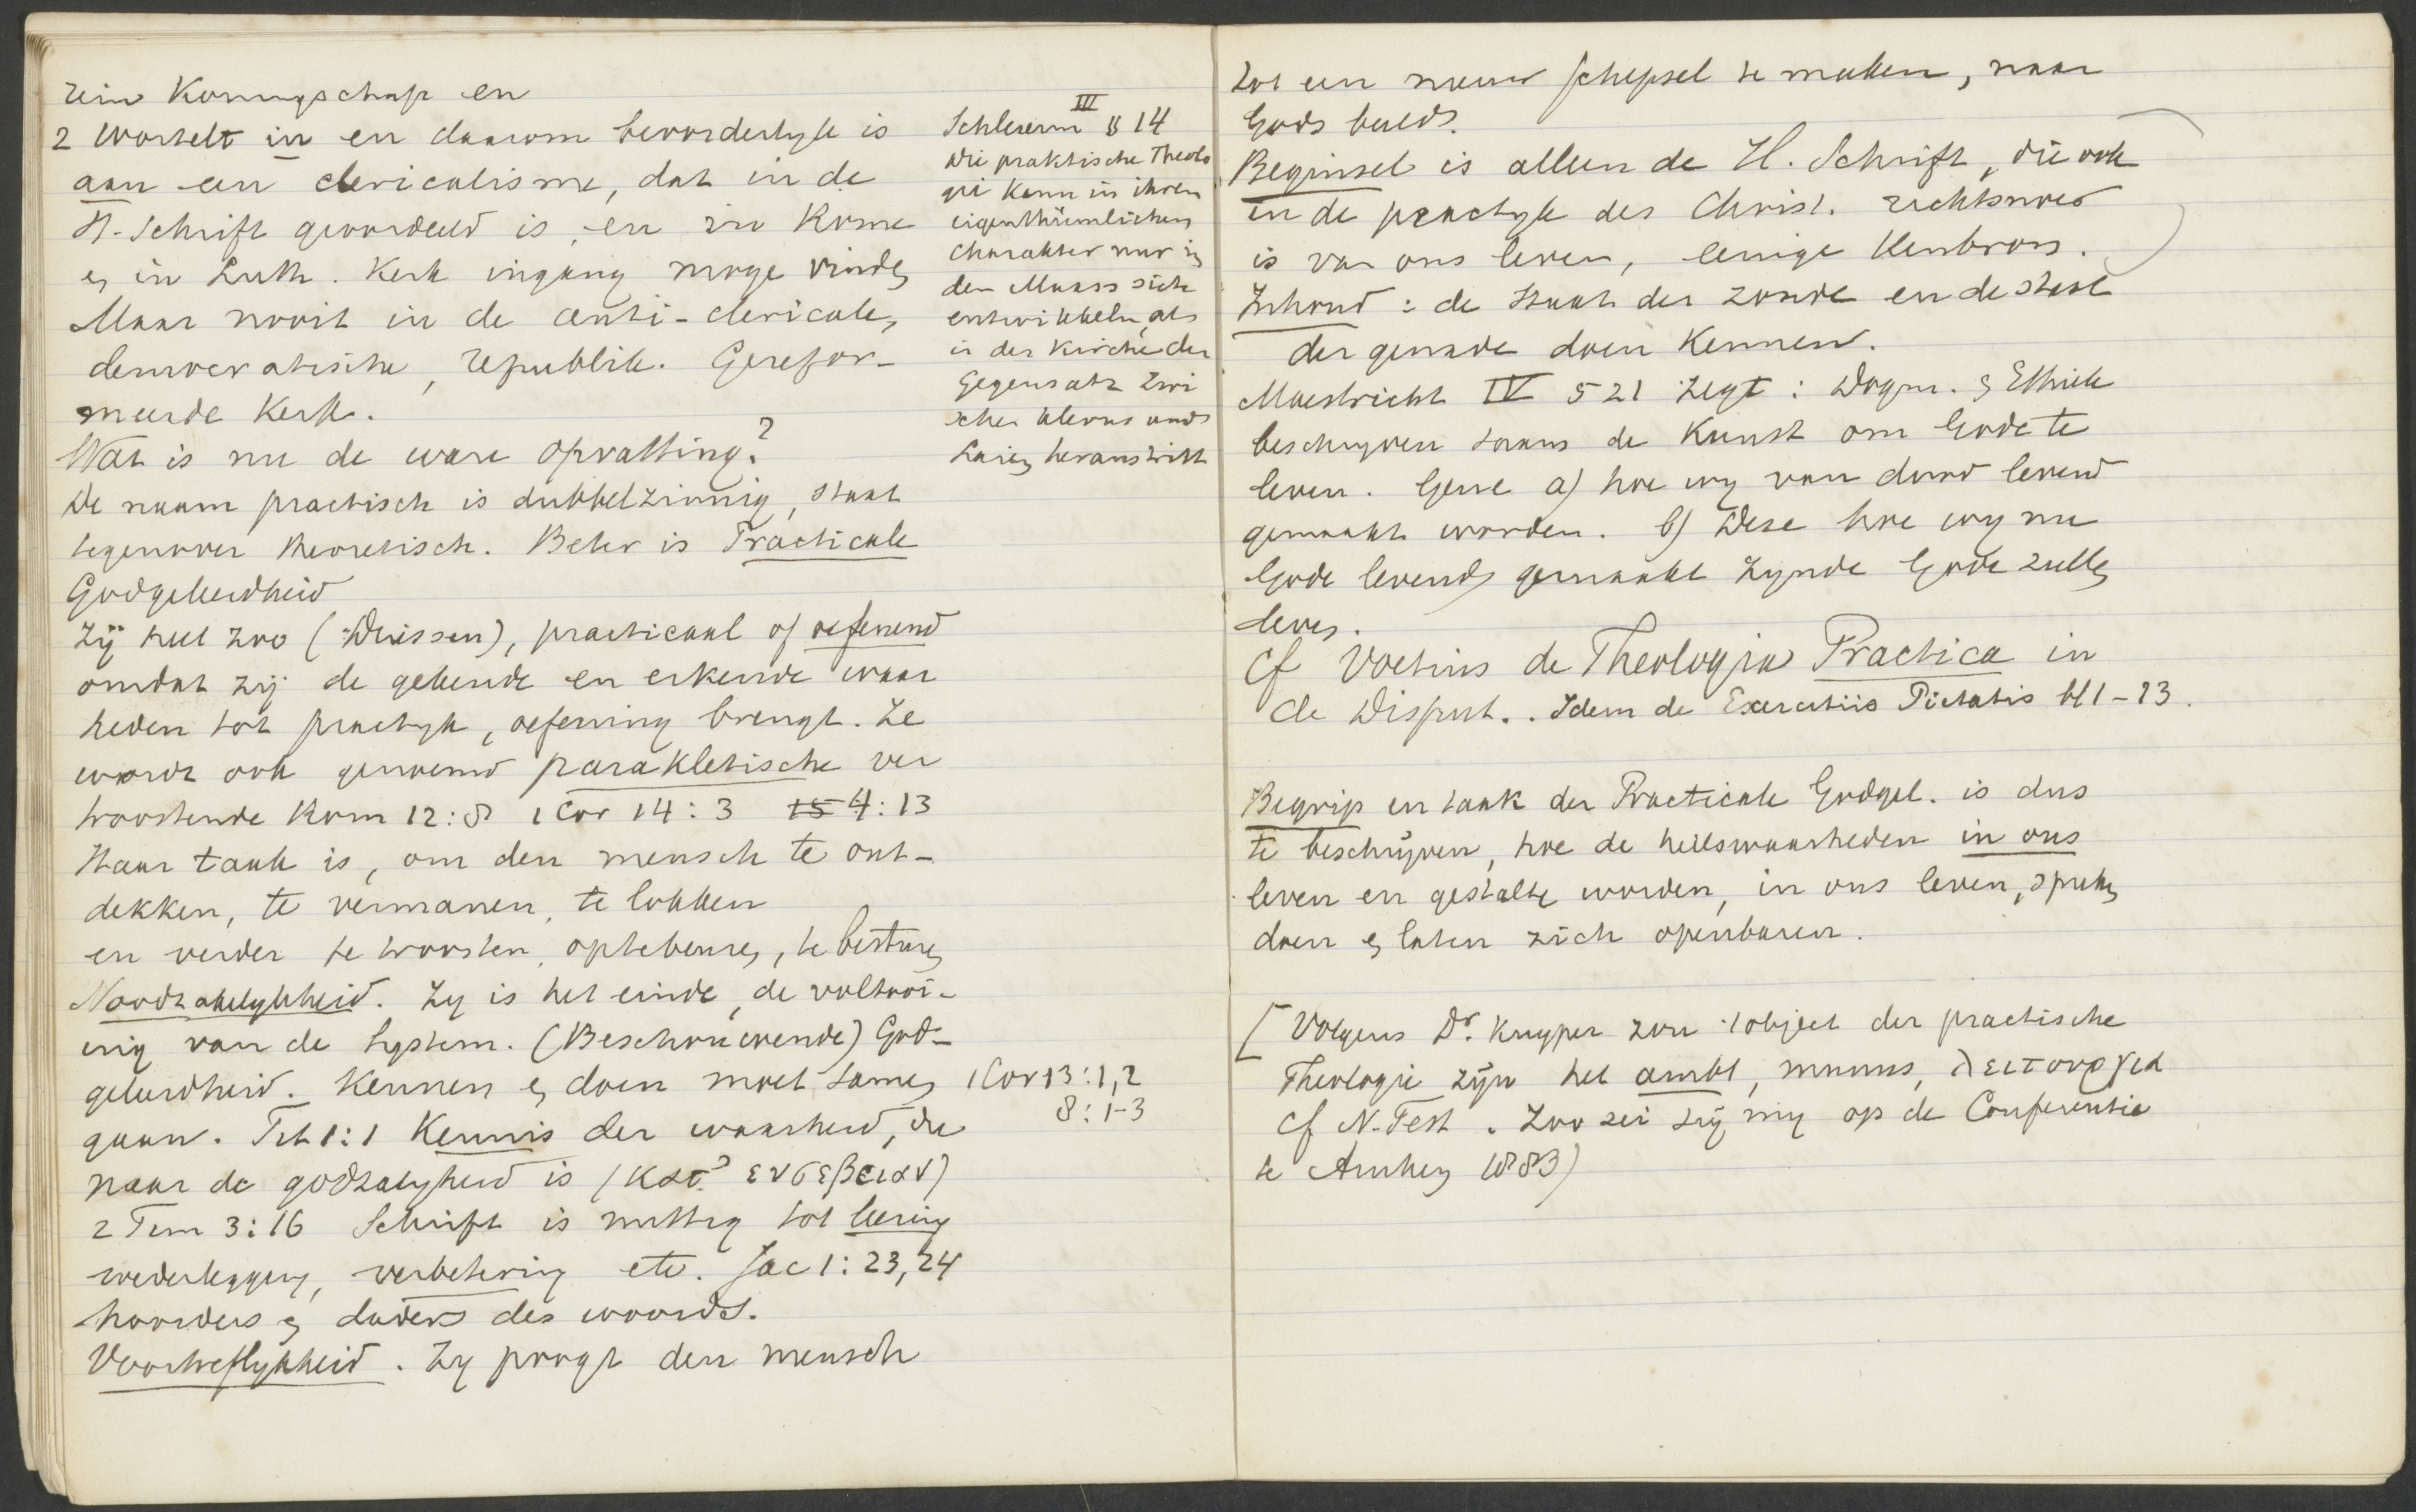 zijn Koningschap en
2 wortelt in en daarom bevorderlyk is
aan een clericalisme, dat in de
H. Schrift geoordeeld is, en in Rome
en in Luth. Kerk ingang moge vinden
Maar nooit in de anti-clericale,
democratische, republik. Gerefor-
meerde Kerk.
Wat is nu de ware opvatting?
De naam practisch is dubbelzinnig, staat
tegenover theoretisch. Beter is Practicale
Godgeleerdheid
Zij heet zoo (Driessen), practicaal of oefenend
omdat zij de gekende en erkende waar
heden tot practyk, oefening brengt. Ze
wordt ook genoemd parakletische ver
troostende Rom 12:8 1 Cor 14:3 15 4:13
Haar taak is, om den mensch te ont-
dekken, te vermanen, te lokken
en verder te troosten, optebeuren, te besturen
Noodzakelykheid. Zy is het einde, de voltooi-
ing van de System. (Beschouwende) God-
geleerdheid. Kennen en doen moet samen
gaan. Tit 1:1 Kennis der waarheid, die
naar de godzalygheid is (κατ' ευσεβειαν)
2 Tim 3:16 Schrift is nuttig tot leering
wederlegging, verbetering etc. Jac 1:23,24
hoorders en daders des woords.
Voortreflykheid. Zy poogt den mensch
III
Schleierm § 14
Die praktische Theolo
gie kann in ihren
eigenthümlichen
Charakter nur in
dem Maass sich
entwikkeln, als
in der Kirche der
Gegensatz zwi
schen klerus und
Laien heraustritt
1 Cor 13:1,2
8:1-3
tot een nieuw schepsel te maken, naar
Gods beeld.
Beginsel is alleen de H. Schrift, die ook
in de practyk des Christ. richtsnoer
is van ons leven, eenige Kenbron.
Inhoud: de staat der zonde en de staat
der genade doen Kennen.
Maestricht IV § 21 zegt: Dogm. en Ethiek
beschryven saam de Kunst om Gode te
leven. Gene a) hoe wy van dood levend
gemaakt worden. b) Deze hoe wy nu
Gode levend gemaakt zynde Gode zullen
leven.
Cf Voetius de Theologia Practica in
de Disput.. Idem de Exercitiis Pietatis bl 1-13.
Begrip en taak der Practicale Godgel. is dus
te beschrijven, hoe de heilswaarheden in ons
leven en gestalte worden, in ons leven, spreken
doen en laten zich openbaren.
[Volgens Dr. Kuyper zou 't object der practische
Theologie zijn het ambt, munus, λειτουργεια
cf N. Test. Zoo zei hij mij op de Conferentie
te Arnhem 1883)